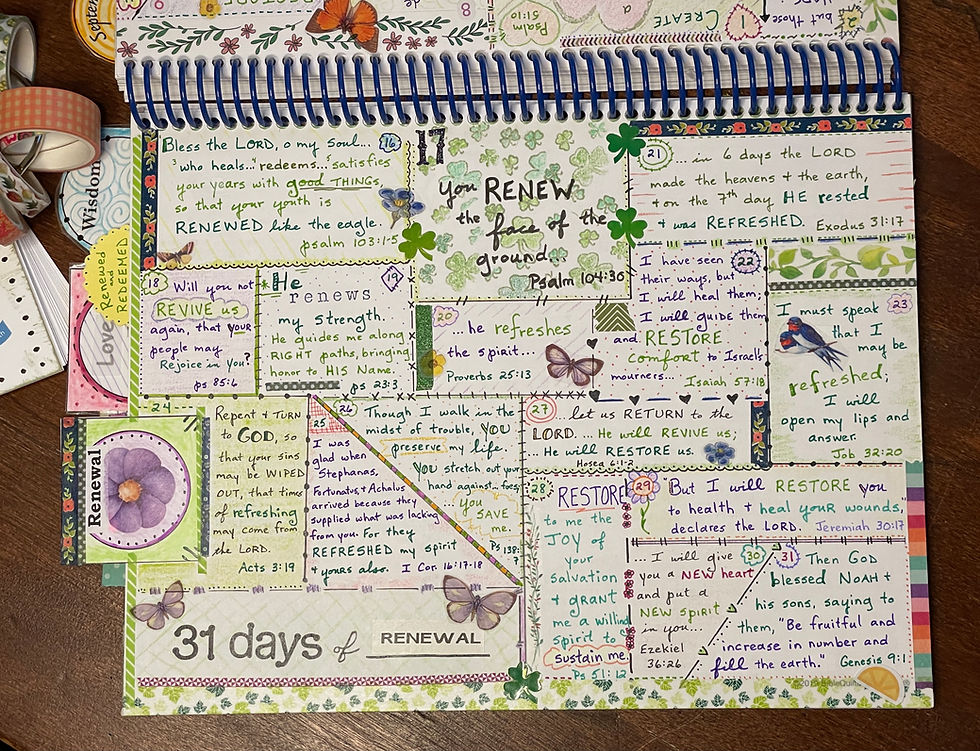 Septe
Psalm
51:10
CREATE
a
1
2
but those
Wisdom
Love
Renewed
and
REDEEMED
Renewal
16
Bless the LORD, o my soul...
3 who heals... 4 redeems... 5 satisfies
your years with good THINGs
so that your youth is
RENEWED like the eagle.
psalm 103:1-5
17
you RENEW
the face of the
ground...
Psalm 104:30
18
Will you not
REVIVE us
again, that your
people may
Rejoice in you?
ps 85:6
19
He
renews
my strength.
He guides me along
RIGHT paths, bringing
honor to HIS Name.
ps 23:3
20
...he refreshes
the spirit...
Proverbs 25:13
21
... in 6 days the LORD
made the heavens + the earth,
+ on the 7th day HE rested
+ was REFRESHED. Exodus 31:17
22
I have seen
their ways, but
I will heal them;
I will guide them
and RESTORE
comfort to Israel's
mourners...
Isaiah 57:18
23
I must speak
that I
may be
refreshed;
I will
open my lips and
answer.
Job 32:20
24
Repent + TURN
to GOD, so
that your sins
may be WIPED
OUT, that times
of refreshing
may come from
the LORD.
Acts 3:19
25
I was
glad when
Stephanas,
Fortunatus, + Achaius
arrived because they
supplied what was lacking
from you. For they
REFRESHED my spirit
+ yours also. I Cor. 16:17-18
26
Though I walk in the
midst of trouble, YOU
preserve my life.
YOU stretch out your
hand against... foes;
YOU
SAVE
me.
Ps 138:
27
... let us RETURN to the
LORD. ... He will REVIVE us;
... He will RESTORE us.
Hosea 6:1-2
28
RESTORE
to me the
JOY of
your
salvation
+ grant
me a willing
spirit to
sustain me.
Ps 51:12
29
But I will RESTORE you
to health + heal your wounds,
declares the LORD. Jeremiah 30:17
30
... I will give
you a NEW heart
and put a
NEW spirit
in you...
Ezekiel
36:26
31
Then GOD
blessed NOAH +
his sons, saying to
them, "Be fruitful and
increase in number and
fill the earth."
Genesis 9:1
31 days of RENEWAL